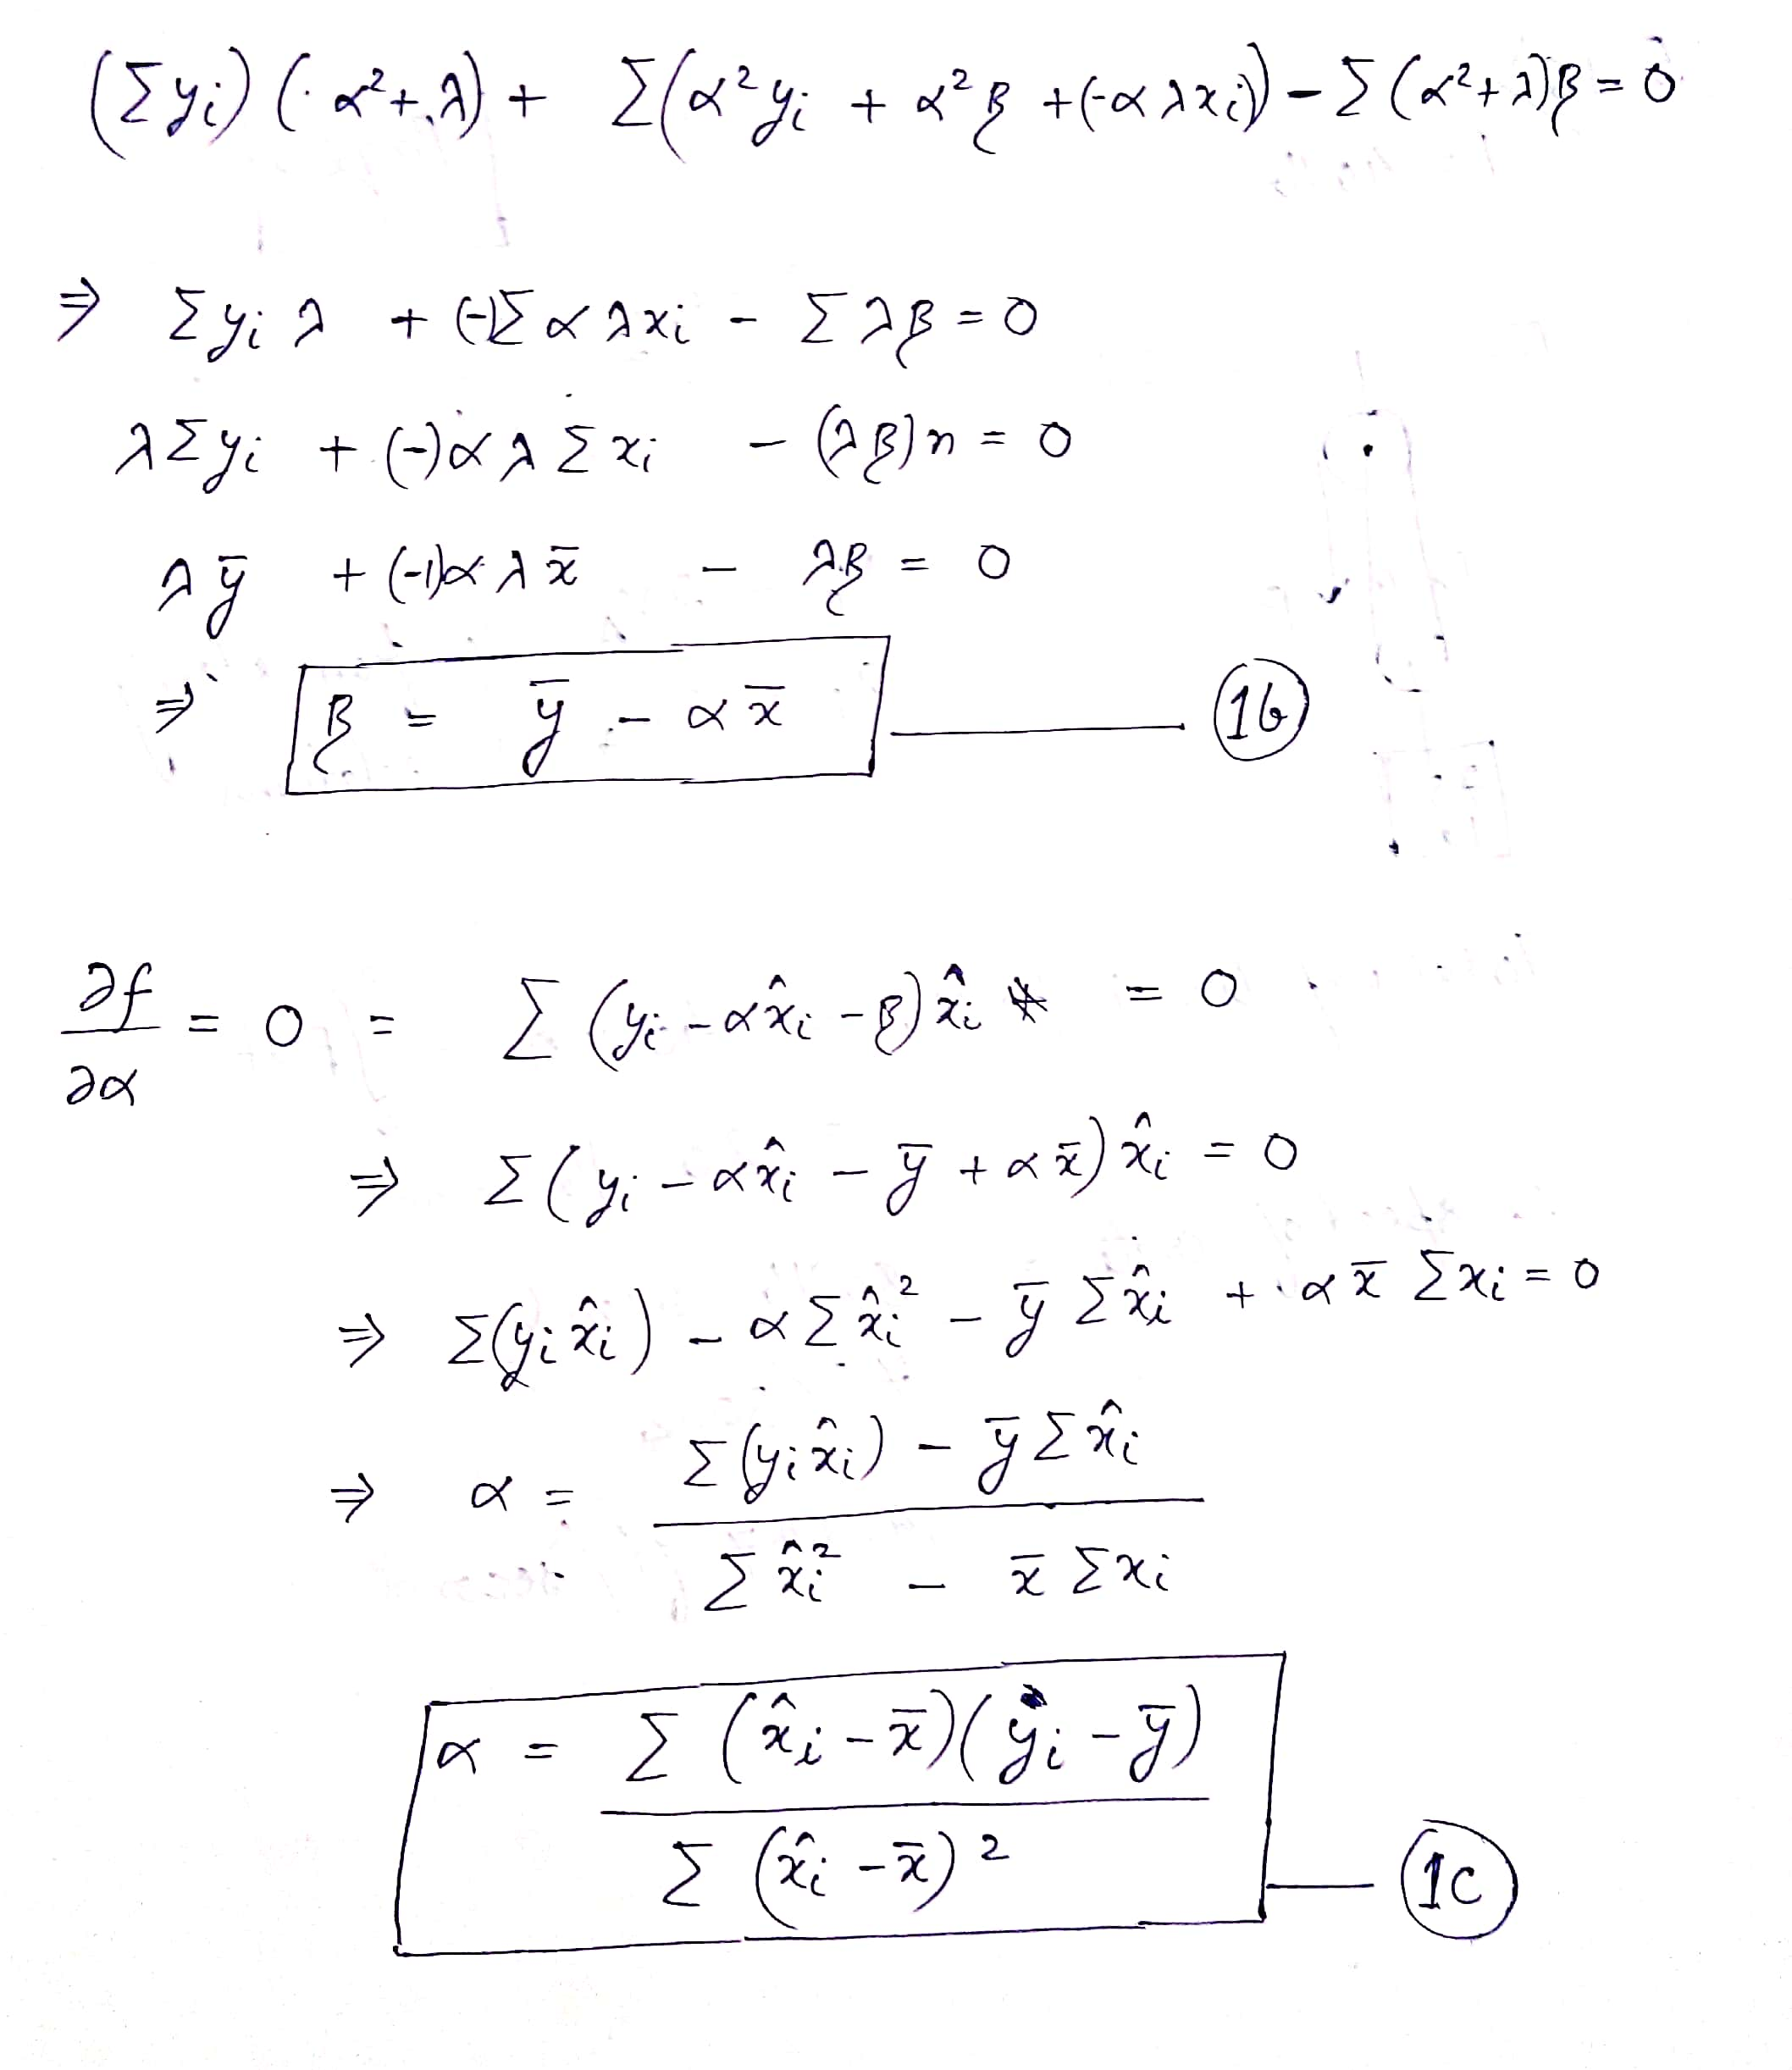 (Σyi) (α²+λ) + Σ(α²yi + α²β +(-αλxi)) - Σ(α²+λ)β = 0
⇒ Σyiλ + (-)Σαλxi - Σλβ = 0
λΣyi + (-)αλΣxi - (λβ)n = 0
λȳ + (-1)αλx̄ - λβ = 0
⇒ β = ȳ - αx̄ — 1b
∂f/∂α = 0 = Σ(yi - αx̂i - β)x̂i = 0
⇒ Σ(yi - αx̂i - ȳ + αx̄)x̂i = 0
⇒ Σ(yix̂i) - αΣx̂i² - ȳΣx̂i + αx̄Σxi = 0
⇒ α = (Σ(yix̂i) - ȳΣx̂i) / (Σx̂i² - x̄Σxi)
α = Σ(x̂i - x̄)(yi - ȳ) / Σ(x̂i - x̄)² — 1c